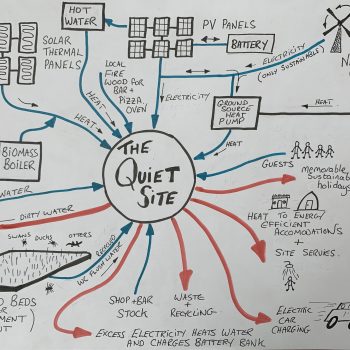 HOT
WATER
SOLAR
THERMAL
PANELS
PV PANELS
BATTERY
ELECTRICITY
(ONLY SUSTAINABLE)
LOCAL
FIRE
WOOD FOR
BAR +
PIZZA
OVEN
ELECTRICITY
HEAT
HEAT
GROUND
SOURCE
HEAT
PUMP
HEAT
HEAT
BIOMASS
BOILER
THE
QUIET
SITE
GUESTS
MEMORABLE,
SUSTAINABLE
HOLIDAYS
WATER
DIRTY WATER
HEAT TO ENERGY
EFFICIENT
ACCOMODATIONS
+
SITE SERVICES.
SWANS DUCKS OTTERS
WC FLUSH WATER
BEDS
SHOP + BAR
STOCK
WASTE
+
RECYCLING
ELECTRIC
CAR
CHARGING
EXCESS ELECTRICITY HEATS WATER
AND CHARGES BATTERY BANK